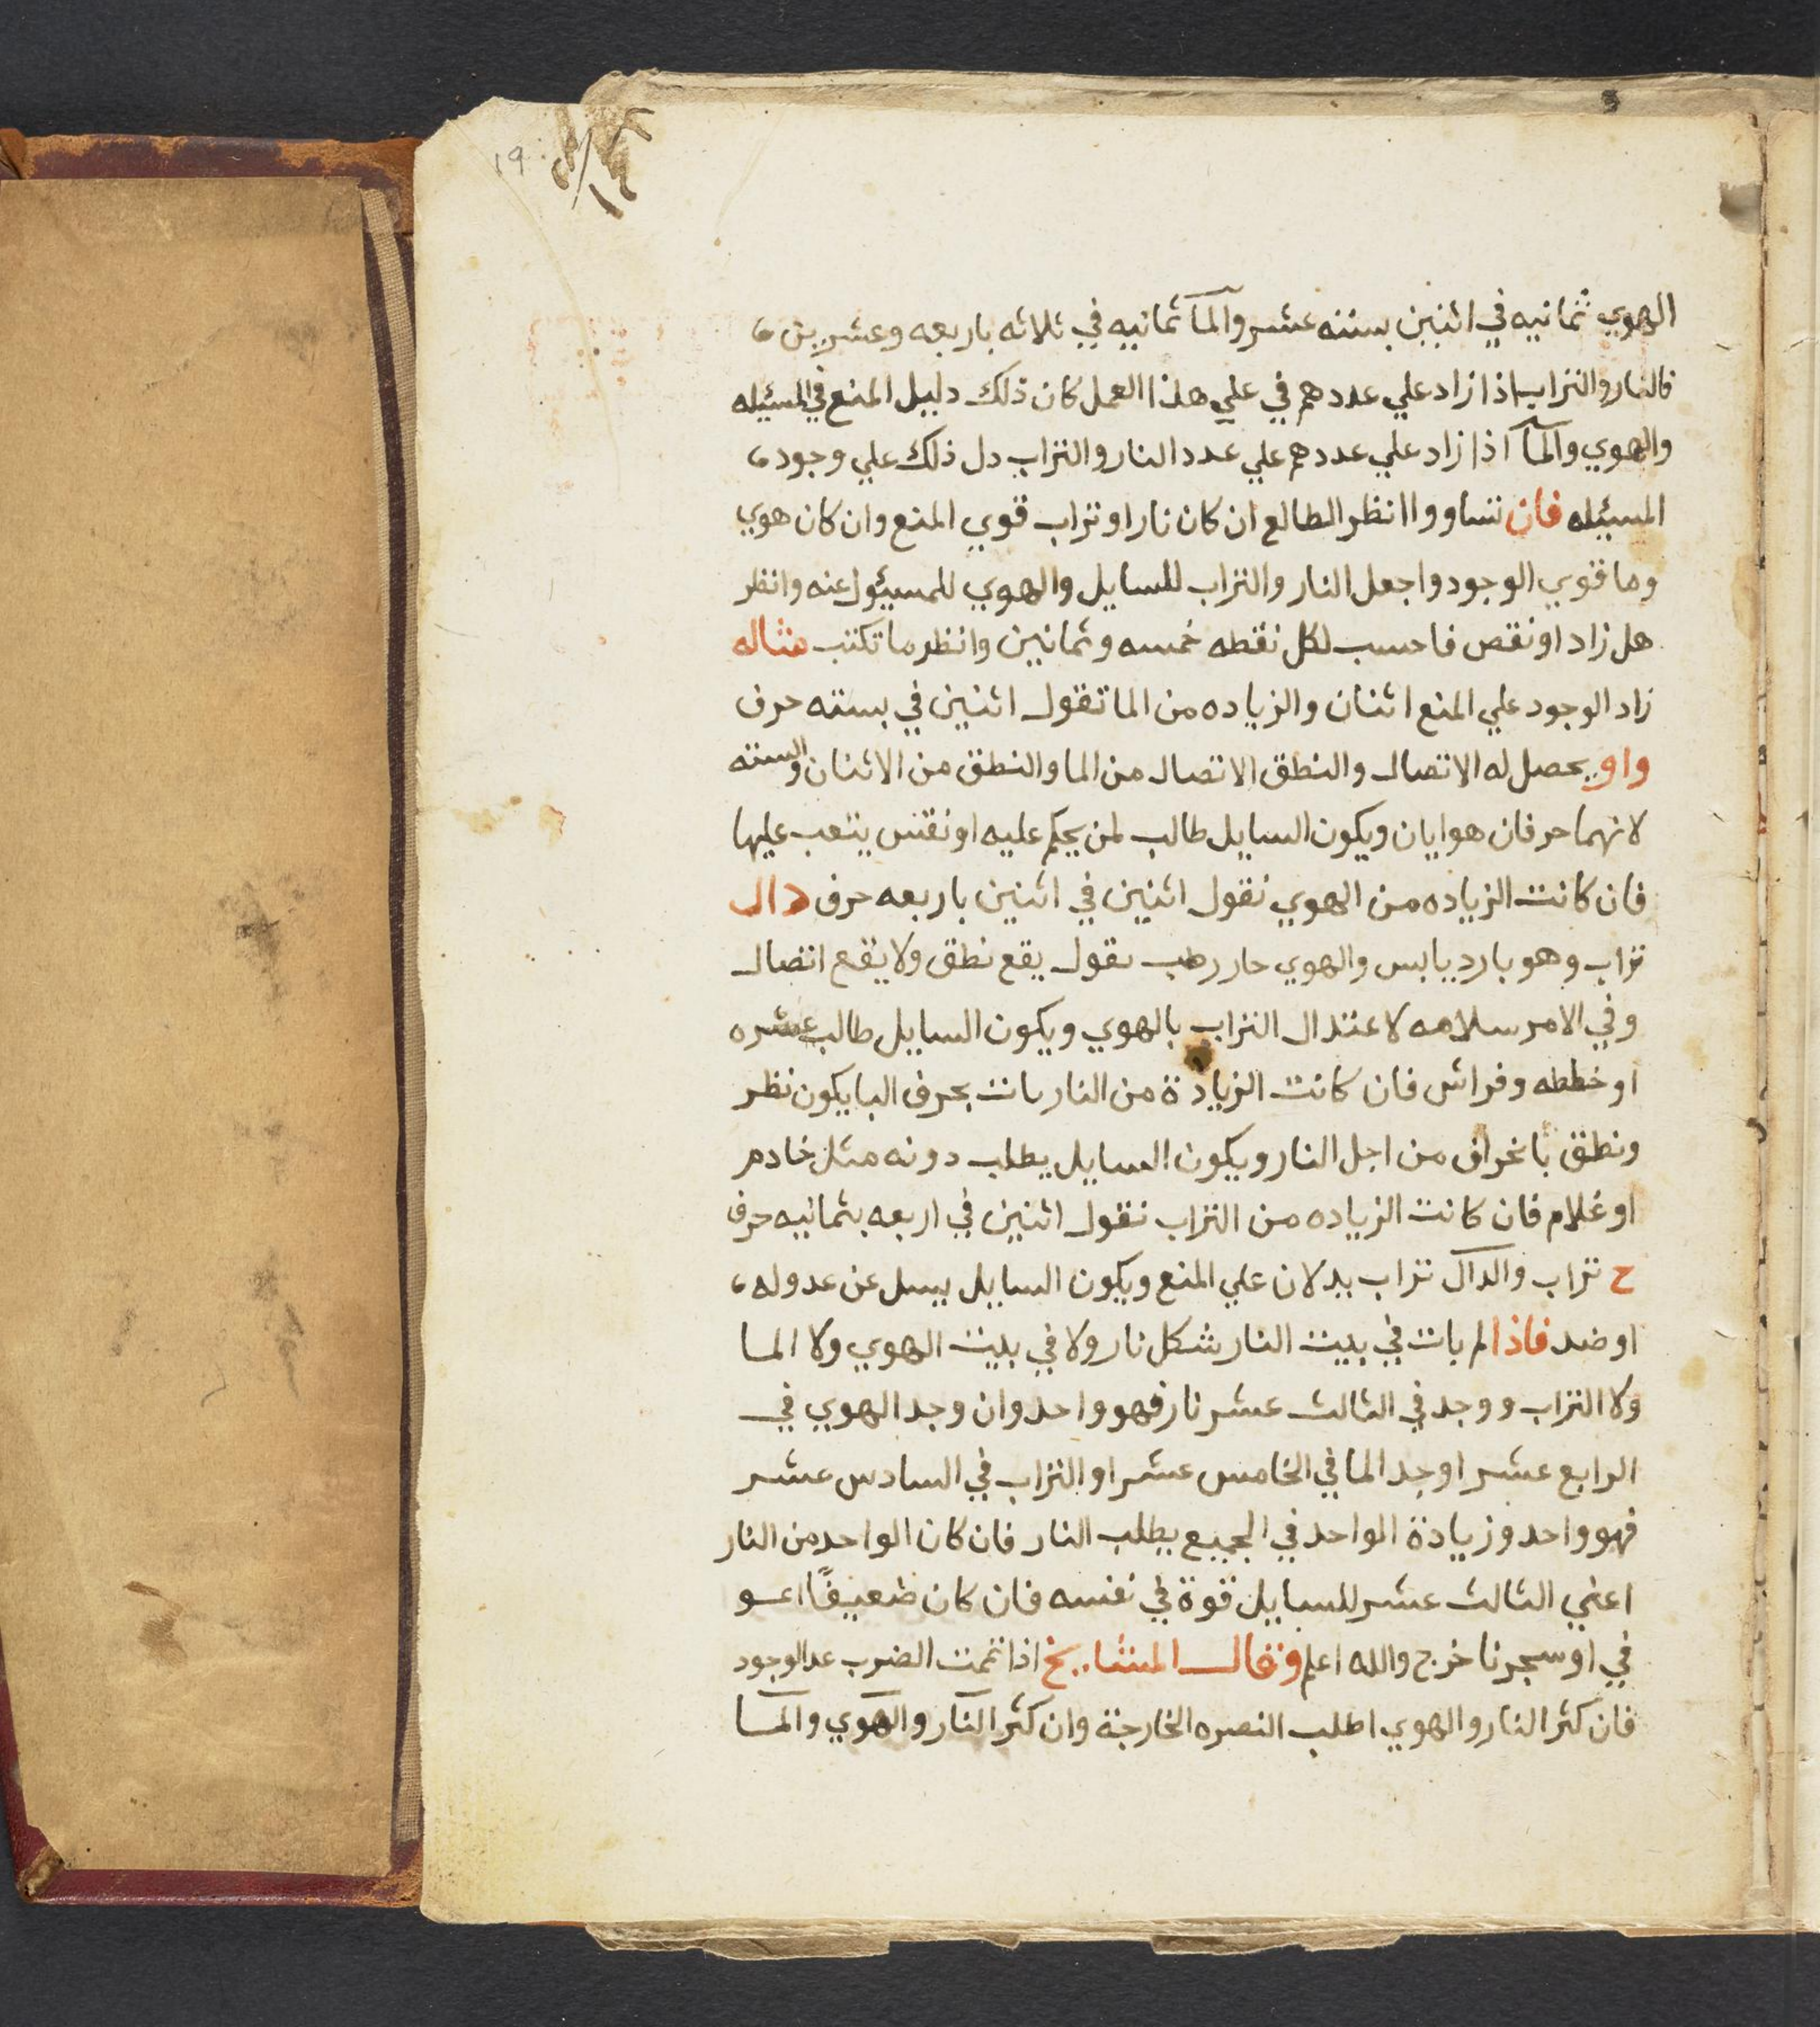 19
الهوي ثمانيه في اثنين بسته عشر والمآ ثمانيه في ثلاثه باربعه وعشرين
فالنار والتراب اذا زاد علي عددهم في علي هذا العمل كان ذلك دليل المنع في المسئيله
والهوي والمآ اذا زاد علي عددهم علي عدد النار والتراب دل ذلك علي وجود
المسيئله فان تساووا انظر الطالع ان كان نار او تراب قوي المنع وان كان هوي
وما قوي الوجود واجعل النار والتراب للسايل والهوي للمسيئول عنه وانظر
هل زاد او نقص فاحسب لكل نقطه خمسه وثمانين وانظر ما تكتب مثاله
زاد الوجود علي المنع اثنان والزياده من الما تقول اثنين في بسته حرف
واو يحصل له الاتصال والنطق الاتصال من الما والنطق من الاثنان والسته
لانهما حرفان هوايان ويكون السايل طالب لمن يحكم عليه او نفس يتعب عليها
فان كانت الزياده من الهوي نقول اثنين في اثنين باربعه حرف دال
تراب وهو بارد يابس والهوي حار رطب نقول يقع نطق ولا يقع اتصال
وفي الامر سلامه لاعتدال التراب بالهوي ويكون السايل طالب عشره
او خطه وفراش فان كانت الزيادة من النار بانت بحرف البا يكون نظر
ونطق بانحراف من اجل النار ويكون السايل يطلب دونه مثل خادم
او غلام فان كانت الزياده من التراب نقول اثنين في اربعه بثمانيه حرف
ح تراب والدال تراب يدلان علي المنع ويكون السايل يسل عن عدوله
او ضد فاذا لم بات في بيت النار شكل نار ولا في بيت الهوي ولا الما
ولا التراب ووجد في الثالث عشر نار فهو واحد وان وجد الهوي في
الرابع عشر او جد الما في الخامس عشر او التراب في السادس عشر
فهو واحد وزيادة الواحد في الجميع يطلب النار فان كان الواحد من النار
اعني الثالث عشر للسايل قوة في نفسه فان كان ضعيفًا
في او سجرنا خرج والله اعلم وقال المشايخ اذا تممت الضرب عد الوجود
فان كثر النار والهوي اطلب النصره الخارجة وان كثر النار والهوي والمآ